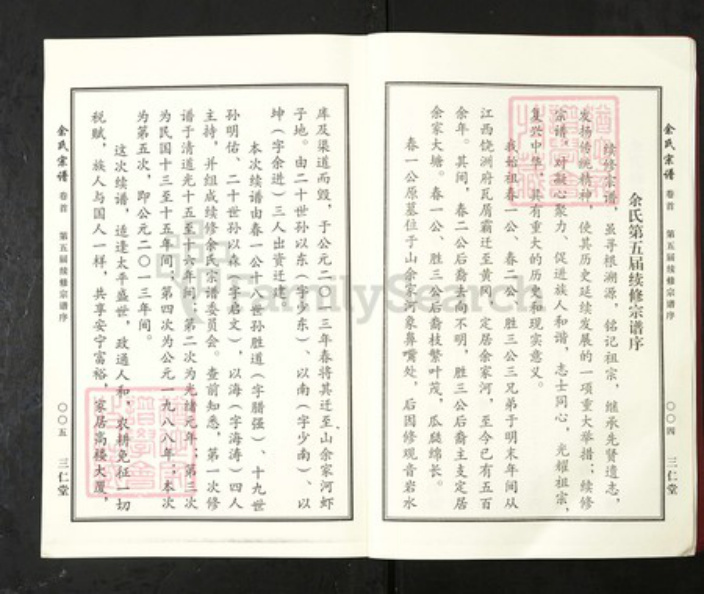 余氏宗谱 卷首 第五届续修宗谱序 〇〇四 三仁堂
余氏第五届续修宗谱序
续修宗谱，虽寻根溯源，铭记祖宗，继承先贤遗志，
发扬传统精神，使其历史延续发展的一项重大举措；续修
宗谱，对凝心聚力、促进族人和谐，志士同心，光耀祖宗，
复兴中华，具有重大的历史和现实意义。
我始祖春一公、春二公、胜三公三兄弟于明末年间从
江西饶洲府瓦屑霸迁至黄冈，定居余家河，至今已有五百
余年。其间，春二公后裔去向不明，胜三公后裔主支定居
余家大塘。春一公、胜三公后裔枝繁叶茂，瓜瓞绵长。
春一公原墓位于山余家河象鼻嘴处，后因修观音岩水
库及渠道而毁，于公元二〇一三年春将其迁至山余家河虾
子地。由二十世孙以东（字少东）、以南（字少南）、以
坤（字余进）三人出资迁建。
本次续谱由春一公十八世孙胜道（字腊强）、十九世
孙明佑、二十世孙以森（字启文），以海（字海涛）四人
主持，并组成续修余氏宗谱委员会。查前知悉，第一次修
谱于清道光十五至十六年间；第二次为光绪元年；第三次
为民国十三至十五年间；第四次为公元一九八八年；本次
为第五次，即公元二〇一三年间。
这次续谱，适逢太平盛世，政通人和，农耕免征一切
税赋，族人与国人一样，共享安宁富裕，家居高楼大厦，
余氏宗谱 卷首 第五届续修宗谱序 〇〇五 三仁堂
FamilySearch